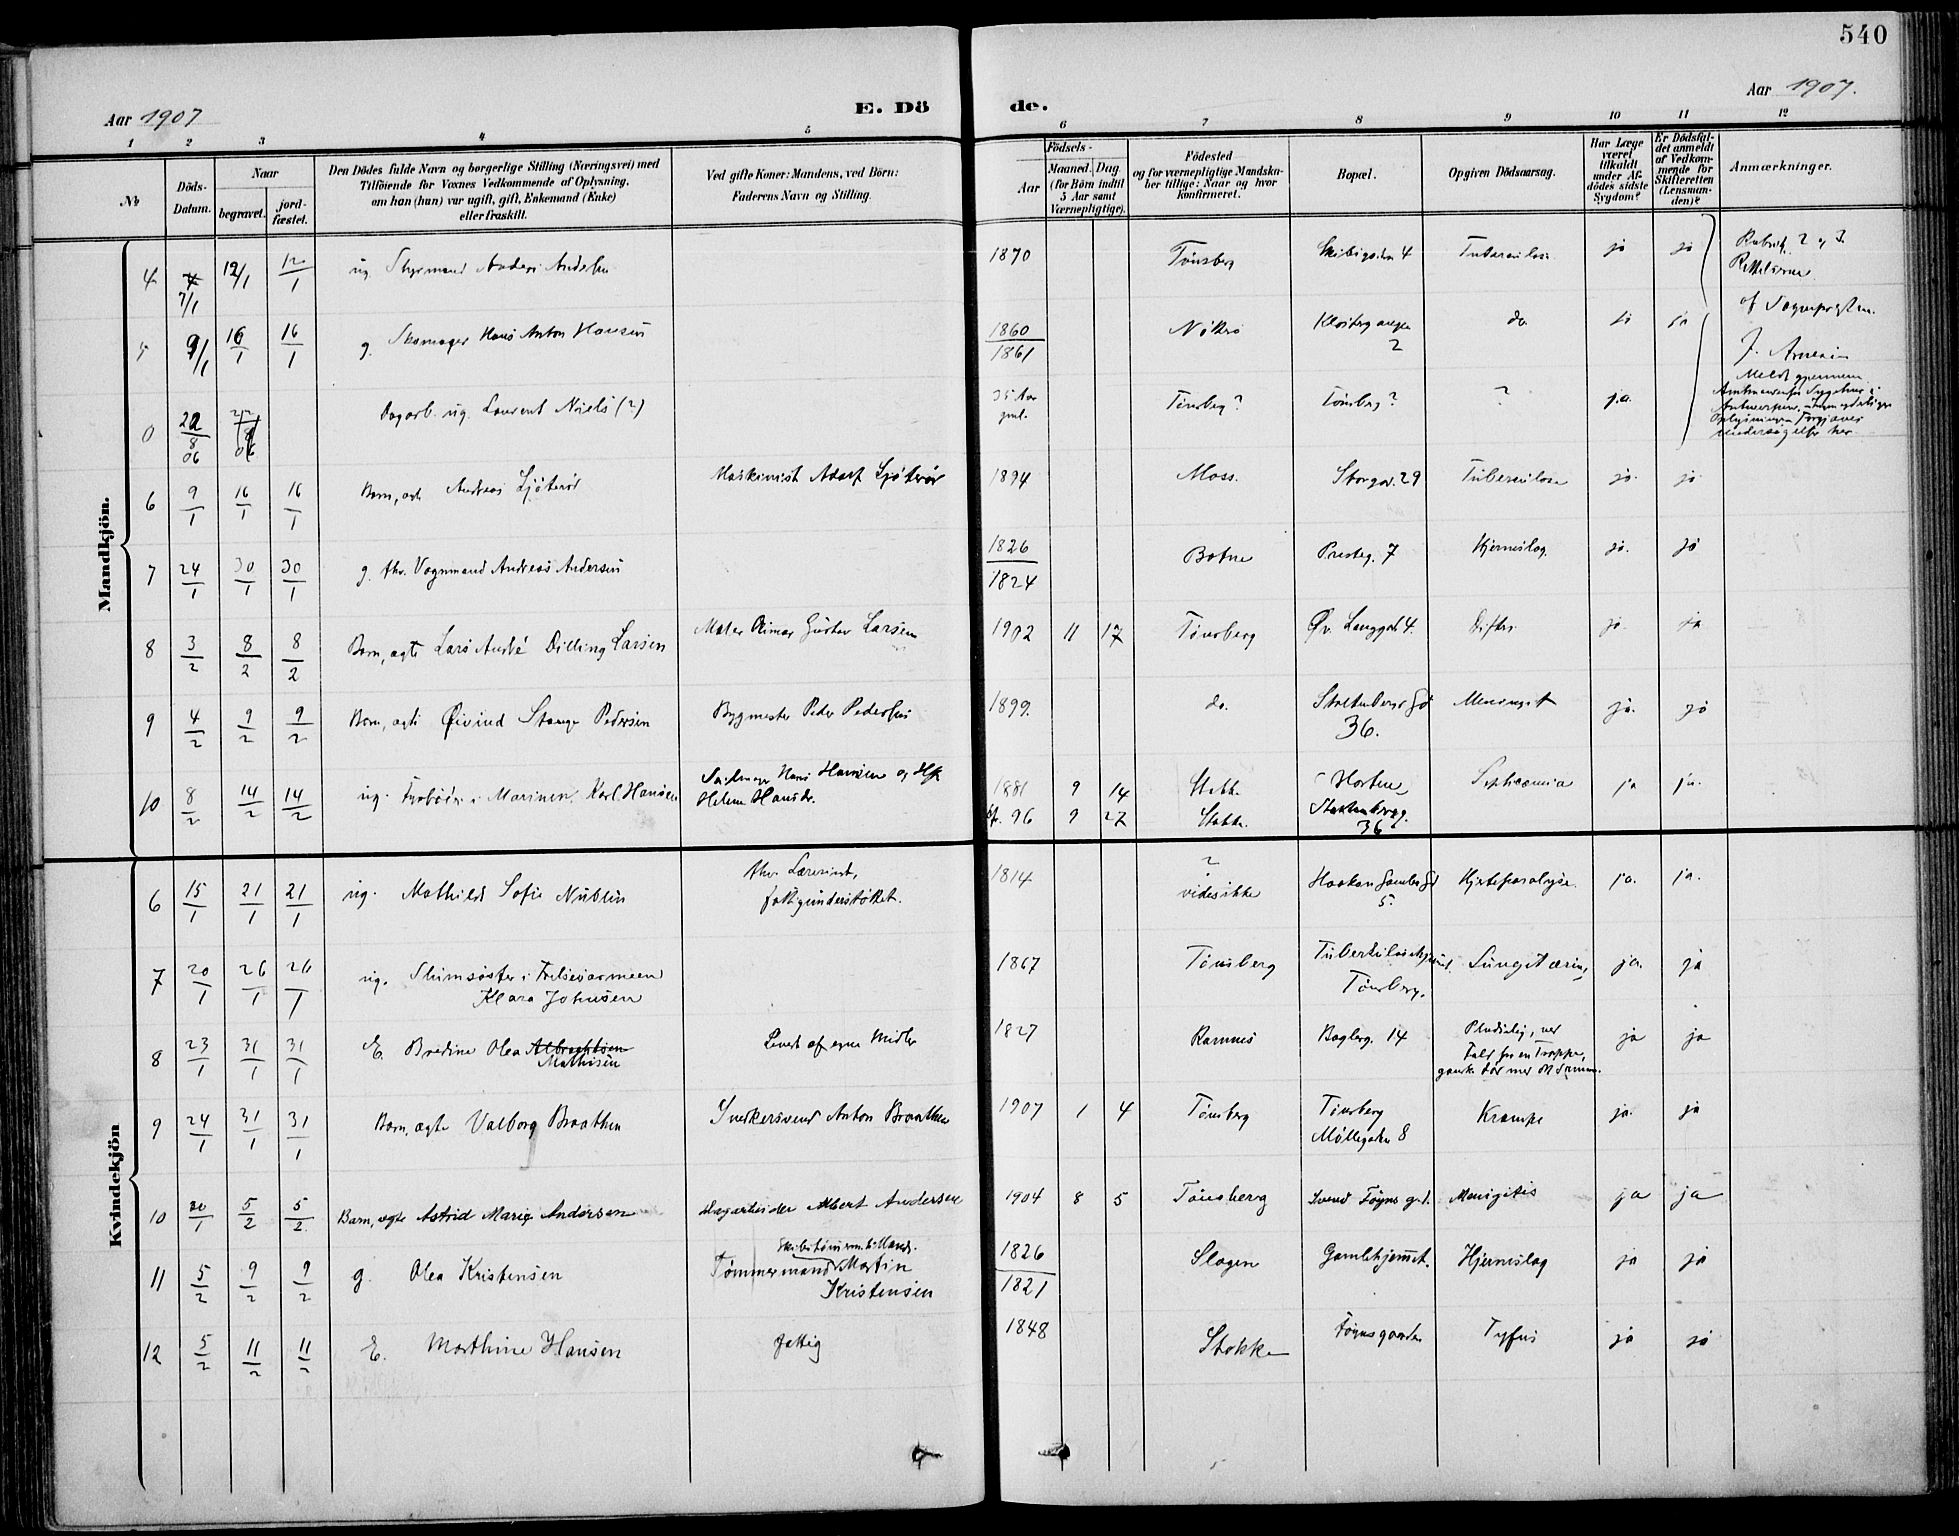 540
Aar 1907
E. Dö
de.
Aar 1907.
1 2 3 4 5 6 7 8 9 10 11 12
№
Döds-
Datum.
Naar
begravet.
jord-
fæstet.
Den Dödes fulde Navn og borgerlige Stilling (Næringsvei) med
Tilföiende for Voxnes Vedkommende af Oplysning,
om han (hun) var ugift, gift, Enkemand (Enke)
eller fraskilt.
Ved gifte Koner: Mandens, ved Börn:
Faderens Navn og Stilling.
Födsels-
Aar
Maaned. Dag
(for Börn indtil
5 Aar samt
Værnepligtige).
Födested
og for værnepligtige Mandska-
ber tillige: Naar og hvor
konfirmeret.
Bopæl.
Opgiven Dödsaarsag.
Har Læge
været
tilkaldt
under Af-
dödes sidste
Sygdom?
Er Dödsfal-
det anmeldt
af Vedkom-
mende for
Skifteretten
(Lensman-
den)?
Anmærkninger.
Mandkjön.
4 7/1 12/1 12/1 ug. Styrmand 1870 Tönsberg 4 ja ja
5 9/1 16/1 16/1 g. Skomager Hans Anton Hansen 1860/1861 Nötterö 2 do. ja ja
0 22/8 06 Dagarb. ug. Laurent Niels (?) 35 Aar gml. Tönsberg? Tönsberg? ? ja.
6 9/1 16/1 16/1 Barn, ægte Andreas Maskinist Adolf 1894 Moss. Storgd. 29 ja. ja.
7 24/1 30/1 30/1 g. fhv. Vognmand Andreas Andersen 1826/1824 Botne Presteg. 7 Hjerneslag ja. ja
8 3/2 8/2 8/2 Barn, ægte Lars Dilling Larsen Maler Gustav Larsen 1902 11 17 Tönsberg Øv. Langgd. 4. Difteri ja. ja
9 4/2 9/2 9/2 Barn, ægte Øivind Stange Pedersen Bygmester Peder Pedersen 1899. do. Stoltenbergs Gd 36. Meningit ja. ja
10 8/2 14/2 14/2 ug. Fyrbøder i Marinen, Karl Hansen Hans Hansen og Hst. Helene Hansdr. 1881 9 14 Stokke Horten Septicæmia ja ja.
96 9 27 Stokke 36
Kvindekjön
6 15/1 21/1 21/1 ug. Mathilde Sofie Nublin fhv. Lærerinde, fattigunderstøttet. 1814 ? vides ikke Haakon Gamles Gd 5. Hjerteparalyse. ja. ja.
7 20/1 26/1 26/1 ug. Slumsøster i Frelsesarmeen Klara Johnsen 1867 Tönsberg Tönsberg. Lungetæring ja. ja
8 23/1 31/1 31/1 E. Bredine Olea Albrechtsen Mathisen Levet af egne Midler 1827 Ramnes Bagleg. 14 Pludselig, ved Fald fra en Trappe, ja ja
9 24/1 31/1 31/1 Barn, ægte Valborg Braathen Snekkersvend Anton Braathen 1907 1 4 Tönsberg Tönsberg Møllegaden 8 Krampe ja. ja
10 30/1 5/2 5/2 Barn, ægte Astrid Marie Andersen Dagarbeider Albert Andersen 1904 8 5 Tönsberg Svend Föyns gd. Menigitis ja ja
11 5/2 9/2 9/2 g. Olea Kristensen Tømmermand Martin Kristensen 1826/1821 Slagen Gamlehjemmet. Hjerneslag ja ja
12 5/2 11/2 11/2 E. Marthine Hansen fattig 1848 Stokke Föynsgaarden Tyfus ja ja